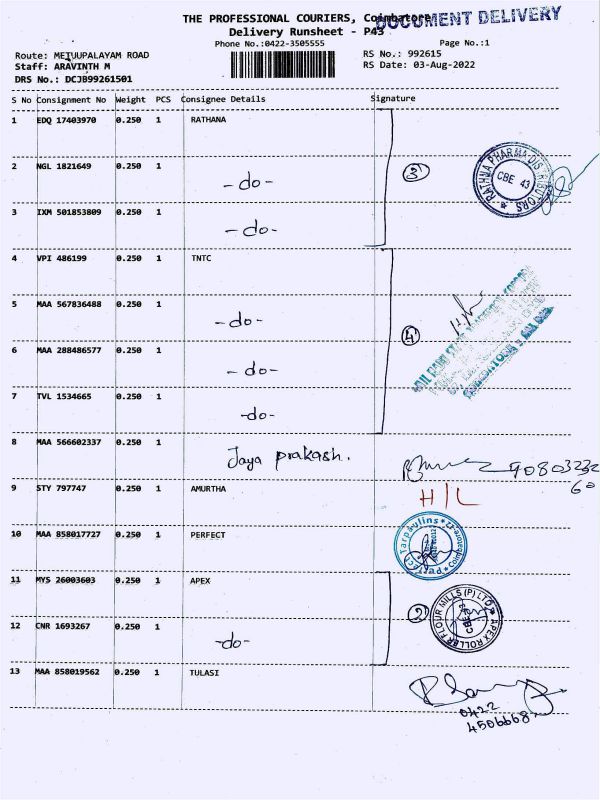 THE PROFESSIONAL COURIERS, Coimbatore
DOCUMENT DELIVERY
Delivery Runsheet - P43
Phone No.:0422-3505555
Page No.:1
Route: METUUPALAYAM ROAD
RS No.: 992615
Staff: ARAVINTH M
RS Date: 03-Aug-2022
DRS No.: DCJB99261501
S No Consignment No Weight PCS Consignee Details Signature
1 EDQ 17403970 0.250 1 RATHANA
2 NGL 1821649 0.250 1 -do- 3
RATHNA PHARMA DISTRIBUTORS CBE 43
3 IXM 501853809 0.250 1 -do-
4 VPI 486199 0.250 1 TNTC
5 MAA 567836488 0.250 1 -do- 4
6 MAA 288486577 0.250 1 -do-
7 TVL 1534665 0.250 1 -do-
8 MAA 566602337 0.250 1 Jaya prakash.
9080323260
9 STY 797747 0.250 1 AMURTHA H/L
10 MAA 858017727 0.250 1 PERFECT
Perfect Tarpaulins * Coimbatore-43
11 MYS 26003603 0.250 1 APEX 2
APEX ROLLER FLOUR MILLS (P) LTD CBE-43
12 CNR 1693267 0.250 1 -do-
13 MAA 858019562 0.250 1 TULASI
0422
4506668